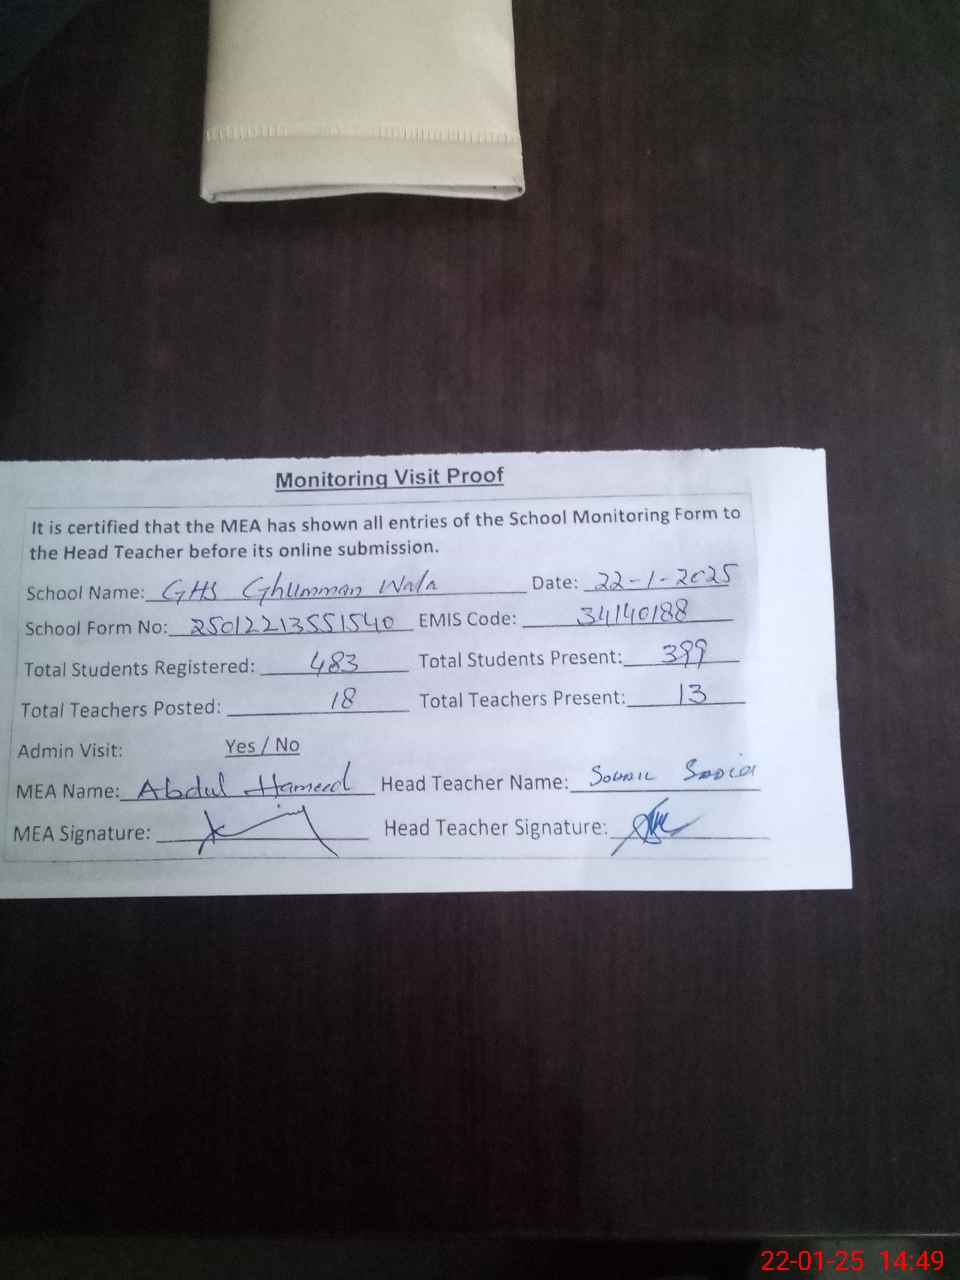 Monitoring Visit Proof
It is certified that the MEA has shown all entries of the School Monitoring Form to
the Head Teacher before its online submission.
School Name: GHS Ghumman Wala Date: 22-1-2025
School Form No: 25012213551540 EMIS Code: 34140188
Total Students Registered: 483 Total Students Present: 399
Total Teachers Posted: 18 Total Teachers Present: 13
Admin Visit: Yes / No
MEA Name: Abdul Hameed Head Teacher Name:
MEA Signature: Head Teacher Signature:
22-01-25 14:49